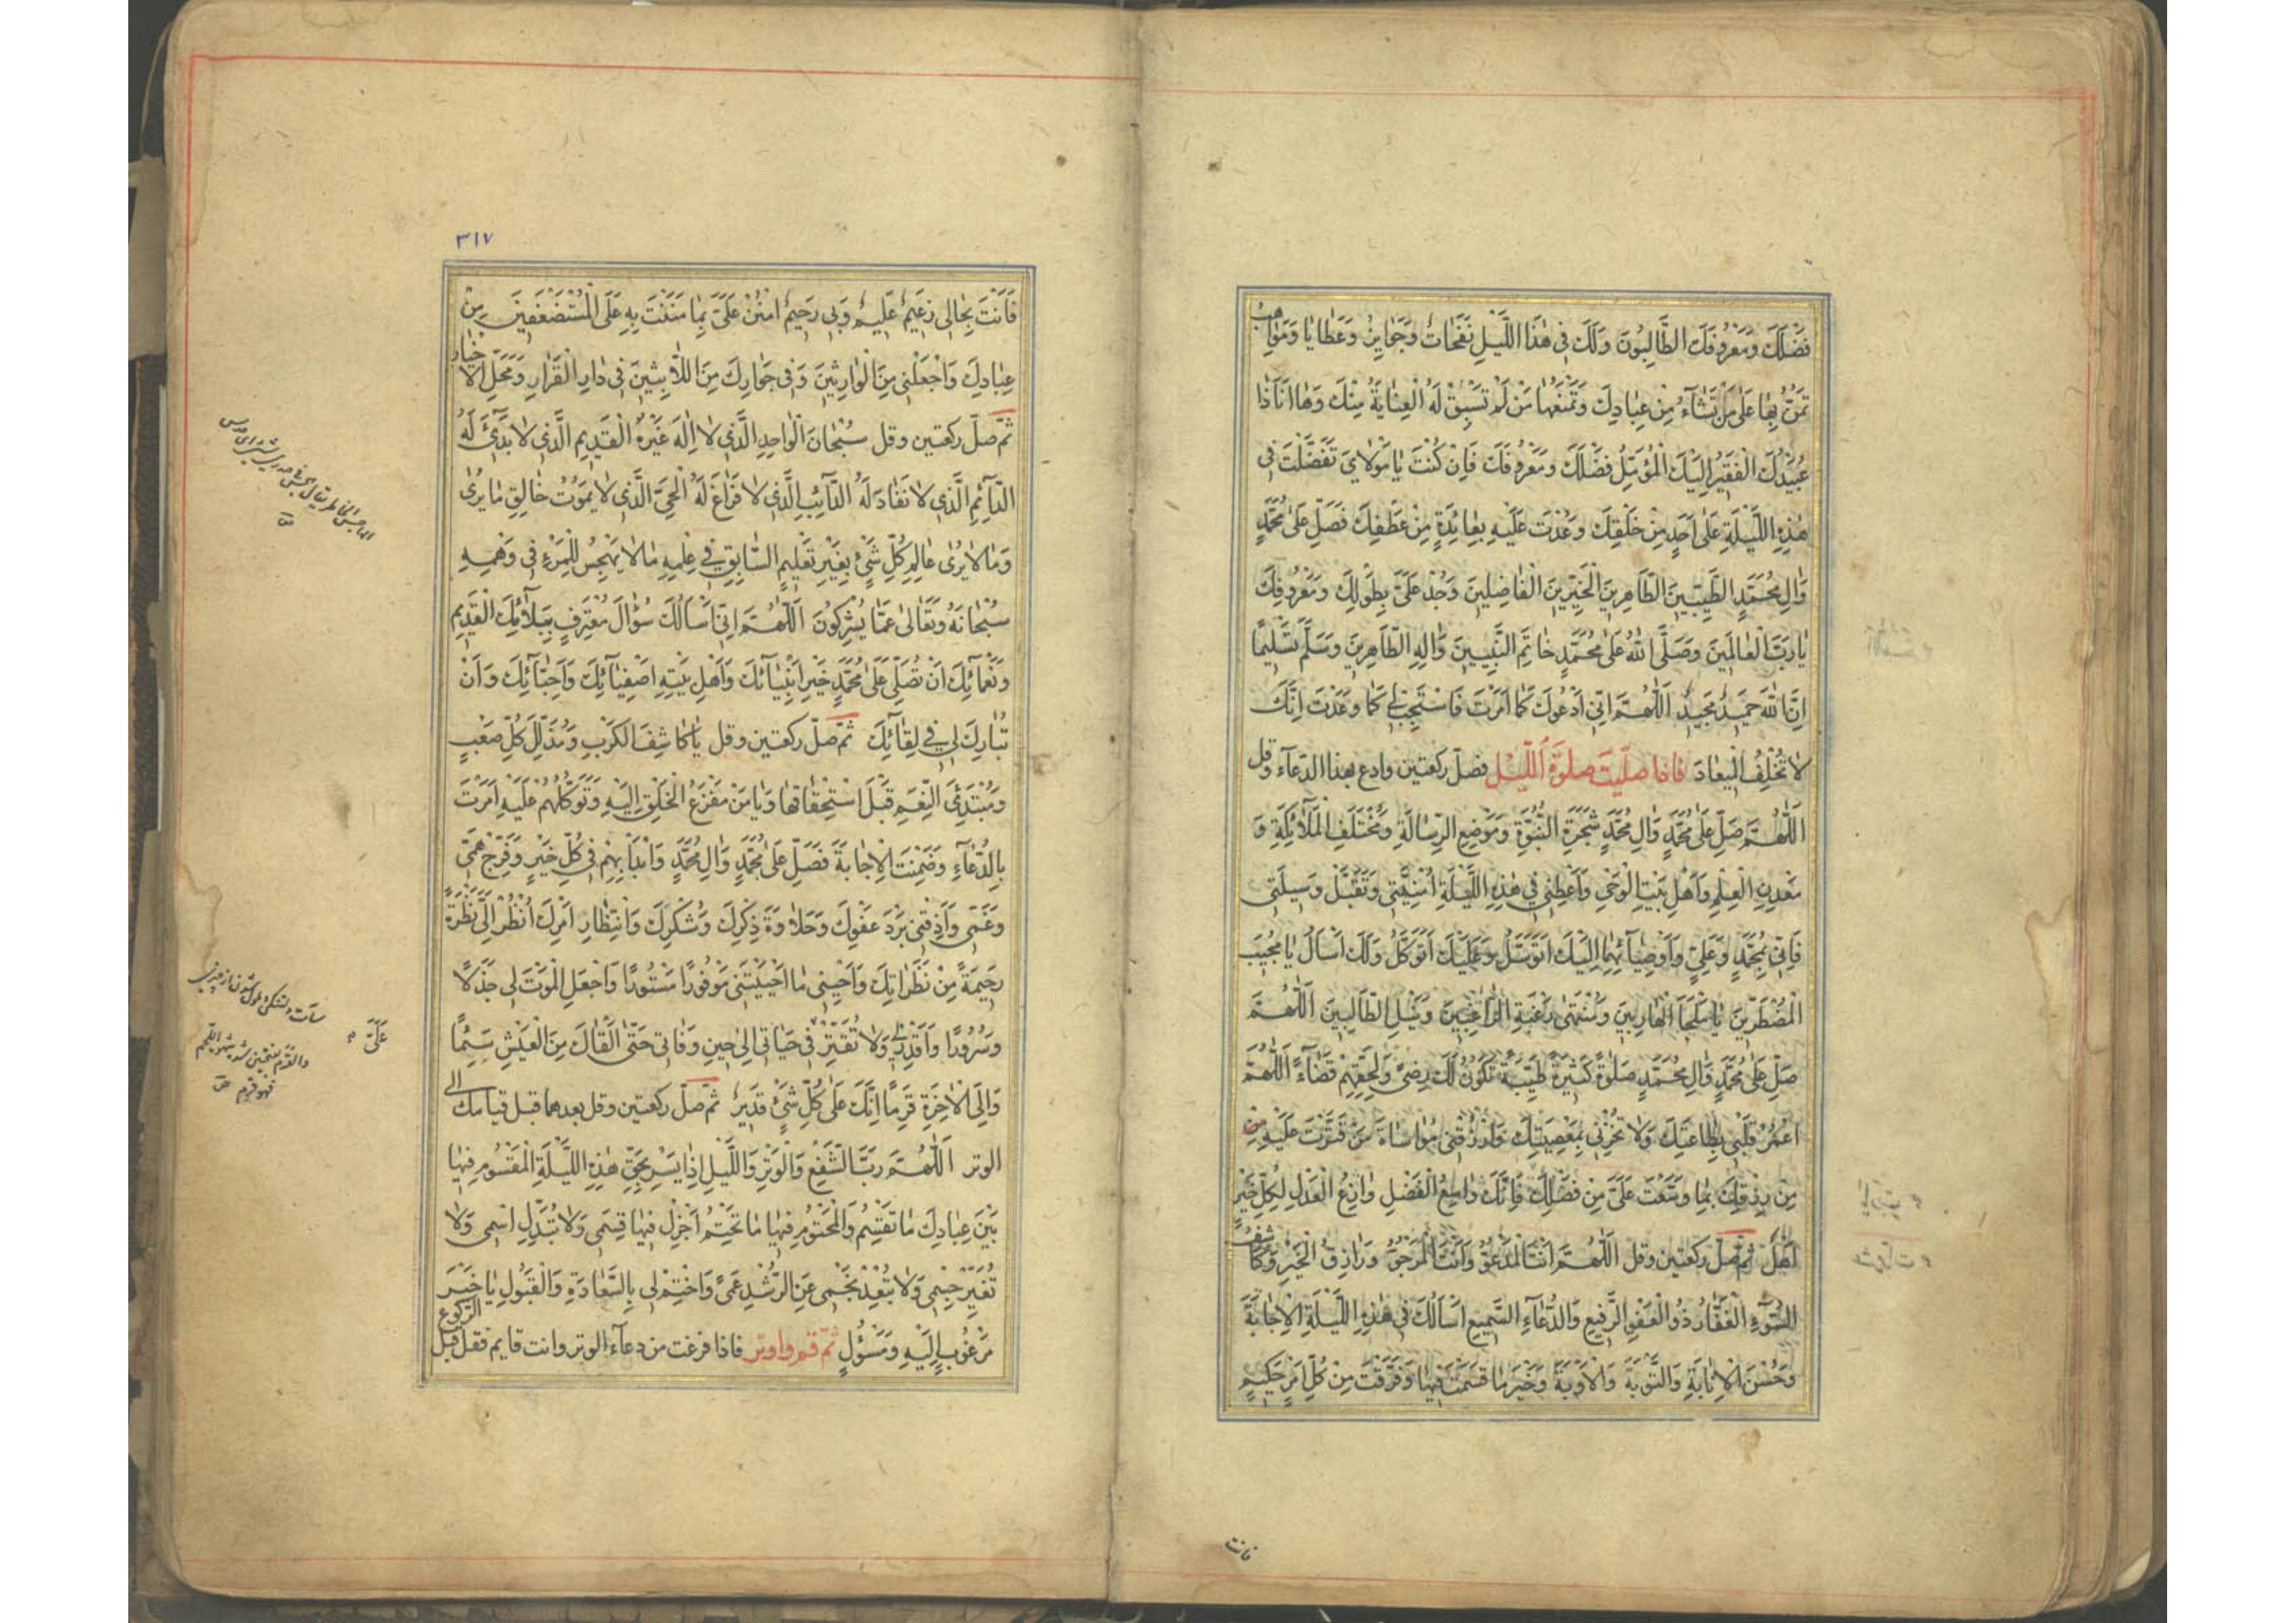 فَضْلَكَ وَمَعْرُوفَكَ الطَّالِبُونَ وَلَكَ فِی هٰذَا اللَّيْلِ نَفَحَاتٌ وَجَوَايِزُ وَعَطَايَا وَمَوَاهِبُ
تَمُنُّ بِهَا عَلٰی مَنْ تَشَآءُ مِنْ عِبَادِكَ وَتَمْنَعُهَا مَنْ لَمْ تَسْبِقْ لَهُ الْعِنَايَةُ مِنْكَ وَهَا اَنَا ذَا
عُبَيْدُكَ الْفَقِيرُ اِلَيْكَ الْمُؤَمِّلُ فَضْلَكَ وَمَعْرُوفَكَ فَاِنْ كُنْتَ يَا مَوْلَایَ تَفَضَّلْتَ فِی
هٰذِهِ اللَّيْلَةِ عَلٰی اَحَدٍ مِنْ خَلْقِكَ وَعُدْتَ عَلَيْهِ بِعَائِدَةٍ مِنْ عَطْفِكَ فَصَلِّ عَلٰی مُحَمَّدٍ
وَاٰلِ مُحَمَّدٍ الطَّيِّبِينَ الطَّاهِرِينَ الْخَيِّرِينَ الْفَاضِلِينَ وَجُدْ عَلَیَّ بِطَوْلِكَ وَمَعْرُوفِكَ
يَا رَبَّ الْعَالَمِينَ وَصَلَّی اللهُ عَلٰی مُحَمَّدٍ خَاتَمِ النَّبِيِّينَ وَاٰلِهِ الطَّاهِرِينَ وَسَلَّمَ تَسْلِيمًا
اِنَّ اللهَ حَمِيدٌ مَجِيدٌ اَللّٰهُمَّ اِنِّی اَدْعُوكَ كَمَا اَمَرْتَ فَاسْتَجِبْ لِی كَمَا وَعَدْتَ اِنَّكَ
لَا تُخْلِفُ الْمِيعَادَ فاذا صلّيت صلوة اللّيل فصلّ ركعتين وادع بهذا الدّعاء وقل
اَللّٰهُمَّ صَلِّ عَلٰی مُحَمَّدٍ وَاٰلِ مُحَمَّدٍ شَجَرَةِ النُّبُوَّةِ وَمَوْضِعِ الرِّسَالَةِ وَمُخْتَلَفِ الْمَلَآئِكَةِ وَ
مَعْدِنِ الْعِلْمِ وَاَهْلِ بَيْتِ الْوَحْیِ وَاَعْطِنِی فِی هٰذِهِ اللَّيْلَةِ اُمْنِيَّتِی وَتَقَبَّلْ وَسِيلَتِی
فَاِنِّی بِمُحَمَّدٍ وَعَلِیٍّ وَاَوْصِيَآئِهِمَا اِلَيْكَ اَتَوَسَّلُ وَعَلَيْكَ اَتَوَكَّلُ وَلَكَ اَسْاَلُ يَا مُجِيبَ
الْمُضْطَرِّينَ يَا مَلْجَأَ الْهَارِبِينَ وَمُنْتَهٰی رَغْبَةِ الرَّاغِبِينَ وَنَيْلِ الطَّالِبِينَ اَللّٰهُمَّ
صَلِّ عَلٰی مُحَمَّدٍ وَاٰلِ مُحَمَّدٍ صَلٰوةً كَثِيرَةً طَيِّبَةً تَكُونُ لَكَ رِضًی وَلِحَقِّهِمْ قَضَآءً اَللّٰهُمَّ
اعْمُرْ قَلْبِی بِطَاعَتِكَ وَلَا تُخْزِنِی بِمَعْصِيَتِكَ وَارْزُقْنِی مُوَاسَاةَ مَنْ قَتَّرْتَ عَلَيْهِ مِنْ
مِنْ رِزْقِكَ بِمَا وَسَّعْتَ عَلَیَّ مِنْ فَضْلِكَ فَاِنَّكَ وَاسِعُ الْفَضْلِ وَازِعُ الْعَدْلِ لِكُلِّ خَيْرٍ
اَهْلٌ ثمّ صلّ ركعتين وقل اَللّٰهُمَّ اَنْتَ الْمَدْعُوُّ وَاَنْتَ الْمَرْجُوُّ وَرَازِقُ الْخَيْرِ وَكَاشِفُ
السُّوٓءِ الْغَفَّارُ ذُو الْعَفْوِ الرَّفِيعِ وَالدُّعَآءِ السَّمِيعِ اَسْاَلُكَ فِی هٰذِهِ اللَّيْلَةِ الْاِجَابَةَ
وَحُسْنَ الْاِنَابَةِ وَالتَّوْبَةَ وَالْاَوْبَةَ وَخَيْرَ مَا قَسَمْتَ فِيهَا وَفَرَقْتَ مِنْ كُلِّ اَمْرٍ حَكِيمٍ
فانت
٣١٧
فَاَنْتَ بِحَالِی زَعِيمٌ عَلِيمٌ وَبِی رَحِيمٌ امْنُنْ عَلَیَّ بِمَا مَنَنْتَ بِهِ عَلَی الْمُسْتَضْعَفِينَ مِنْ
عِبَادِكَ وَاجْعَلْنِی مِنَ الْوَارِثِينَ وَفِی جِوَارِكَ مِنَ اللَّابِثِينَ فِی دَارِ الْقَرَارِ وَمَحَلِّ الْاَخْيَارِ
ثمّ صلّ ركعتين وقل سُبْحَانَ الْوَاحِدِ الَّذِی لَا اِلٰهَ غَيْرُهُ الْقَدِيمِ الَّذِی لَا بَدْیَٔ لَهُ
الدَّآئِمِ الَّذِی لَا نَفَادَ لَهُ الدَّآئِبِ الَّذِی لَا فَرَاغَ لَهُ الْحَیِّ الَّذِی لَا يَمُوتُ خَالِقِ مَا يُرٰی
وَمَا لَا يُرٰی عَالِمِ كُلِّ شَیْءٍ بِغَيْرِ تَعْلِيمٍ السَّابِقِ فِی عِلْمِهِ مَا لَا يَهْجُسُ لِلْمَرْءِ فِی وَهْمِهِ
سُبْحَانَهُ وَتَعَالٰی عَمَّا يُشْرِكُونَ اَللّٰهُمَّ اِنِّی اَسْاَلُكَ سُؤَالَ مُعْتَرِفٍ بِبَلَآئِكَ الْقَدِيمِ
وَنَعْمَآئِكَ اَنْ تُصَلِّیَ عَلٰی مُحَمَّدٍ خَيْرِ اَنْبِيَآئِكَ وَاَهْلِ بَيْتِهِ اَصْفِيَآئِكَ وَاَحِبَّآئِكَ وَاَنْ
تُبَارِكَ لِی فِی لِقَآئِكَ ثمّ صلّ ركعتين وقل يَا كَاشِفَ الْكَرْبِ وَمُذَلِّلَ كُلِّ صَعْبٍ
وَمُبْتَدِئَ النِّعَمِ قَبْلَ اسْتِحْقَاقِهَا وَيَا مَنْ مَفْزَعُ الْخَلْقِ اِلَيْهِ وَتَوَكُّلُهُمْ عَلَيْهِ اَمَرْتَ
بِالدُّعَآءِ وَضَمِنْتَ الْاِجَابَةَ فَصَلِّ عَلٰی مُحَمَّدٍ وَاٰلِ مُحَمَّدٍ وَابْدَأْ بِهِمْ فِی كُلِّ خَيْرٍ وَفَرِّجْ هَمِّی
وَغَمِّی وَاَذِقْنِی بَرْدَ عَفْوِكَ وَحَلَاوَةَ ذِكْرِكَ وَشُكْرِكَ وَانْتِظَارِ اَمْرِكَ اُنْظُرْ اِلَیَّ نَظْرَةً
رَحِيمَةً مِنْ نَظَرَاتِكَ وَاَحْيِنِی مَا اَحْيَيْتَنِی مَوْفُورًا مَسْتُورًا وَاجْعَلِ الْمَوْتَ لِی جَذَلًا
وَسُرُورًا وَاقْدِرْ لِی وَلَا تُقَتِّرْ فِی حَيَاتِی اِلٰی حِينِ وَفَاتِی حَتّٰی اَلْقَاكَ مِنَ الْعَيْشِ سَئِمًا
وَاِلَی الْاٰخِرَةِ قَرِمًا اِنَّكَ عَلٰی كُلِّ شَیْءٍ قَدِيرٌ ثمّ صلّ ركعتين وقل بعدهما قبل قيامك الی
الوتر اَللّٰهُمَّ رَبَّ الشَّفْعِ وَالْوَتْرِ وَاللَّيْلِ اِذَا يَسْرِ بِحَقِّ هٰذِهِ اللَّيْلَةِ الْمَقْسُومِ فِيهَا
بَيْنَ عِبَادِكَ مَا تَقْسِمُ وَالْمَحْتُومِ فِيهَا مَا تَحْتِمُ اَجْزِلْ فِيهَا قِسَمِی وَلَا تُبَدِّلِ اسْمِی وَلَا
تُغَيِّرْ جِسْمِی وَلَا تُبْعِدْ نَجْمِی عَنِ الرُّشْدِ عَمًی وَاخْتِمْ لِی بِالسَّعَادَةِ وَالْقَبُولِ يَا خَيْرَ
مَرْغُوبٍ اِلَيْهِ وَمَسْئُولٍ ثمّ قم واوتر فاذا فرغت من دعآء الوتر وانت قايم فقل قبل الرّكوع
عَلَیَّ